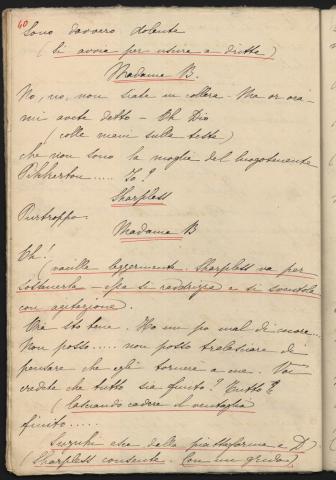 60
Sono davvero dolente
(si avvia per uscire a dritta)
Madame B.
No, no, non siate in collera. Ma or ora
mi avete detto - Oh Dio
(colle mani sulla testa)
che non sono la moglie del luogotenente
Pinkerton..... Io?
Sharpless
Purtroppo.
Madame B
Eh!
(vacilla leggermente. Sharpless va per
sostenerla - essa si raddrizza e si sventola
con agitazione).
Ora sto bene. Ho un po mal di cuore...
Non posso..... non posso tralasciare di
pensare che egli tornerà a me. Voi
credete che tutto sia finito? Tutto?
(lasciando cadere il ventaglio
finito......
Suzuki esce dalla piattaforma a D
(Sharpless consente. Con un grido)